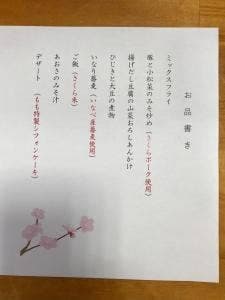 お品書き
ミックスフライ
豚と小松菜のみそ炒め（さくらポーク使用）
揚げだし豆腐の山菜おろしあんかけ
ひじきと大豆の煮物
いなり蕎麦（いなべ産蕎麦使用）
ご飯（さくら米）
あおさのみそ汁
デザート（もも特製シフォンケーキ）